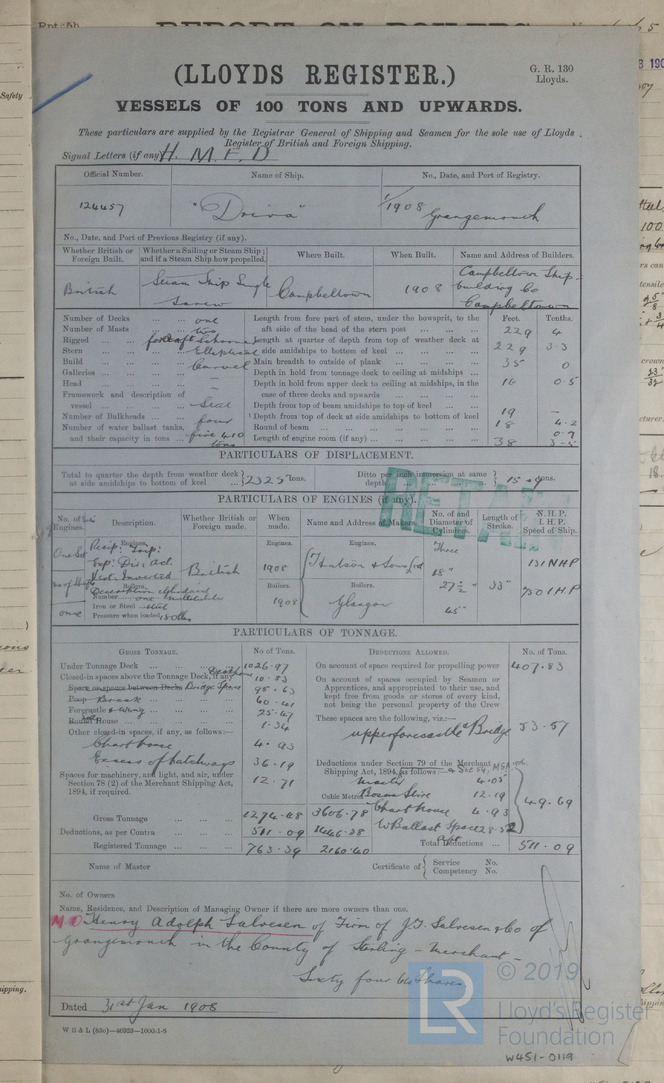 Rpt. 5b.
REPORT ON BOILERS
(LLOYDS REGISTER.)
G. R. 130
Lloyds.
VESSELS OF 100 TONS AND UPWARDS.
These particulars are supplied by the Registrar General of Shipping and Seamen for the sole use of Lloyds
Register of British and Foreign Shipping.
Signal Letters (if any) H. M. F. D
Official Number. Name of Ship. No., Date, and Port of Registry.
124457 "Driva" 1/1908 Grangemouth
No., Date, and Port of Previous Registry (if any).
Whether British or Foreign Built. Whether a Sailing or Steam Ship; and if a Steam Ship how propelled. Where Built. When Built. Name and Address of Builders.
British Steam Ship Single Screw Campbeltown 1908 Campbeltown Ship-building Co Campbeltown
Number of Decks one
Number of Masts two
Rigged fore & aft Schooner
Stern Elliptical
Build Carvel
Galleries —
Head —
Framework and description of vessel Steel
Number of Bulkheads four
Number of water ballast tanks, and their capacity in tons five 410 tons
Feet. Tenths.
Length from fore part of stem, under the bowsprit, to the aft side of the head of the stern post 229 4
Length at quarter of depth from top of weather deck at side amidships to bottom of keel 229 3.3
Main breadth to outside of plank 35 0
Depth in hold from tonnage deck to ceiling at midships 16 0.5
Depth in hold from upper deck to ceiling at midships, in the case of three decks and upwards
Depth from top of beam amidships to top of keel 19 —
Depth from top of deck at side amidships to bottom of keel 18 4.2
Round of beam 0.9
Length of engine room (if any) 38 3.5
PARTICULARS OF DISPLACEMENT.
Total to quarter the depth from weather deck at side amidships to bottom of keel 2325 tons. Ditto per inch immersion at same depth 15 tons.
RETAIN
PARTICULARS OF ENGINES (if any).
No. of Sets Engines. Description. Whether British or Foreign made. When made. Name and Address of Makers. No. of and Diameter of Cylinders. Length of Stroke. N. H. P. I. H. P. Speed of Ship.
Engines. Engines. Engines.
One Set Recip: Trip: Exp: Dir: Act. Vert: Inverted British 1908 Hutson & Sons Ltd Three 18" 27½" 45" 33" 131 NHP 750 IHP
Boilers. Boilers. Boilers.
Description Cylindrical
Number one multitubular
Iron or Steel steel
Pressure when loaded 180 lbs
one 1908 Glasgow
PARTICULARS OF TONNAGE.
GROSS TONNAGE. No. of Tons. DEDUCTIONS ALLOWED. No. of Tons.
Under Tonnage Deck 1026.97
Closed-in spaces above the Tonnage Deck, if any 10.83
Space or spaces between Decks Bridge Space 95.63
Poop Break 60.41
Forecastle & Wing 25.47
Round House 1.34
Other closed-in spaces, if any, as follows:—
Chart house 4.93
Excess of hatchways 36.19
Spaces for machinery, and light, and air, under Section 78 (2) of the Merchant Shipping Act, 1894, if required. 12.71
Gross Tonnage 1274.48 3606.78
Deductions, as per Contra 511.09 1446.38
Registered Tonnage 763.39 2160.40
Cubic Metres
On account of space required for propelling power 407.83
On account of spaces occupied by Seamen or Apprentices, and appropriated to their use, and kept free from goods or stores of every kind, not being the personal property of the Crew
These spaces are the following, viz.:—
upper forecastle & Bridge 53.57
Deductions under Section 79 of the Merchant Shipping Act, 1894, as follows:—
Master 4.05
Bosns Store 12.19
Chart house 4.93
W Ballast Space aft 28.52
49.69
Total Deductions 511.09
Name of Master
Certificate of Service No. Competency No.
No. of Owners
Name, Residence, and Description of Managing Owner if there are more owners than one.
M O Henry Adolph Salvesen of Firm of J.T. Salvesen & Co of
Grangemouth in the County of Stirling – Merchant –
Sixty four 64th Shares
Dated 31st Jan 1908
W B & L (83c)—46923—1000-1-8
LR © 2019
Lloyd's Register
Foundation
W451-0119